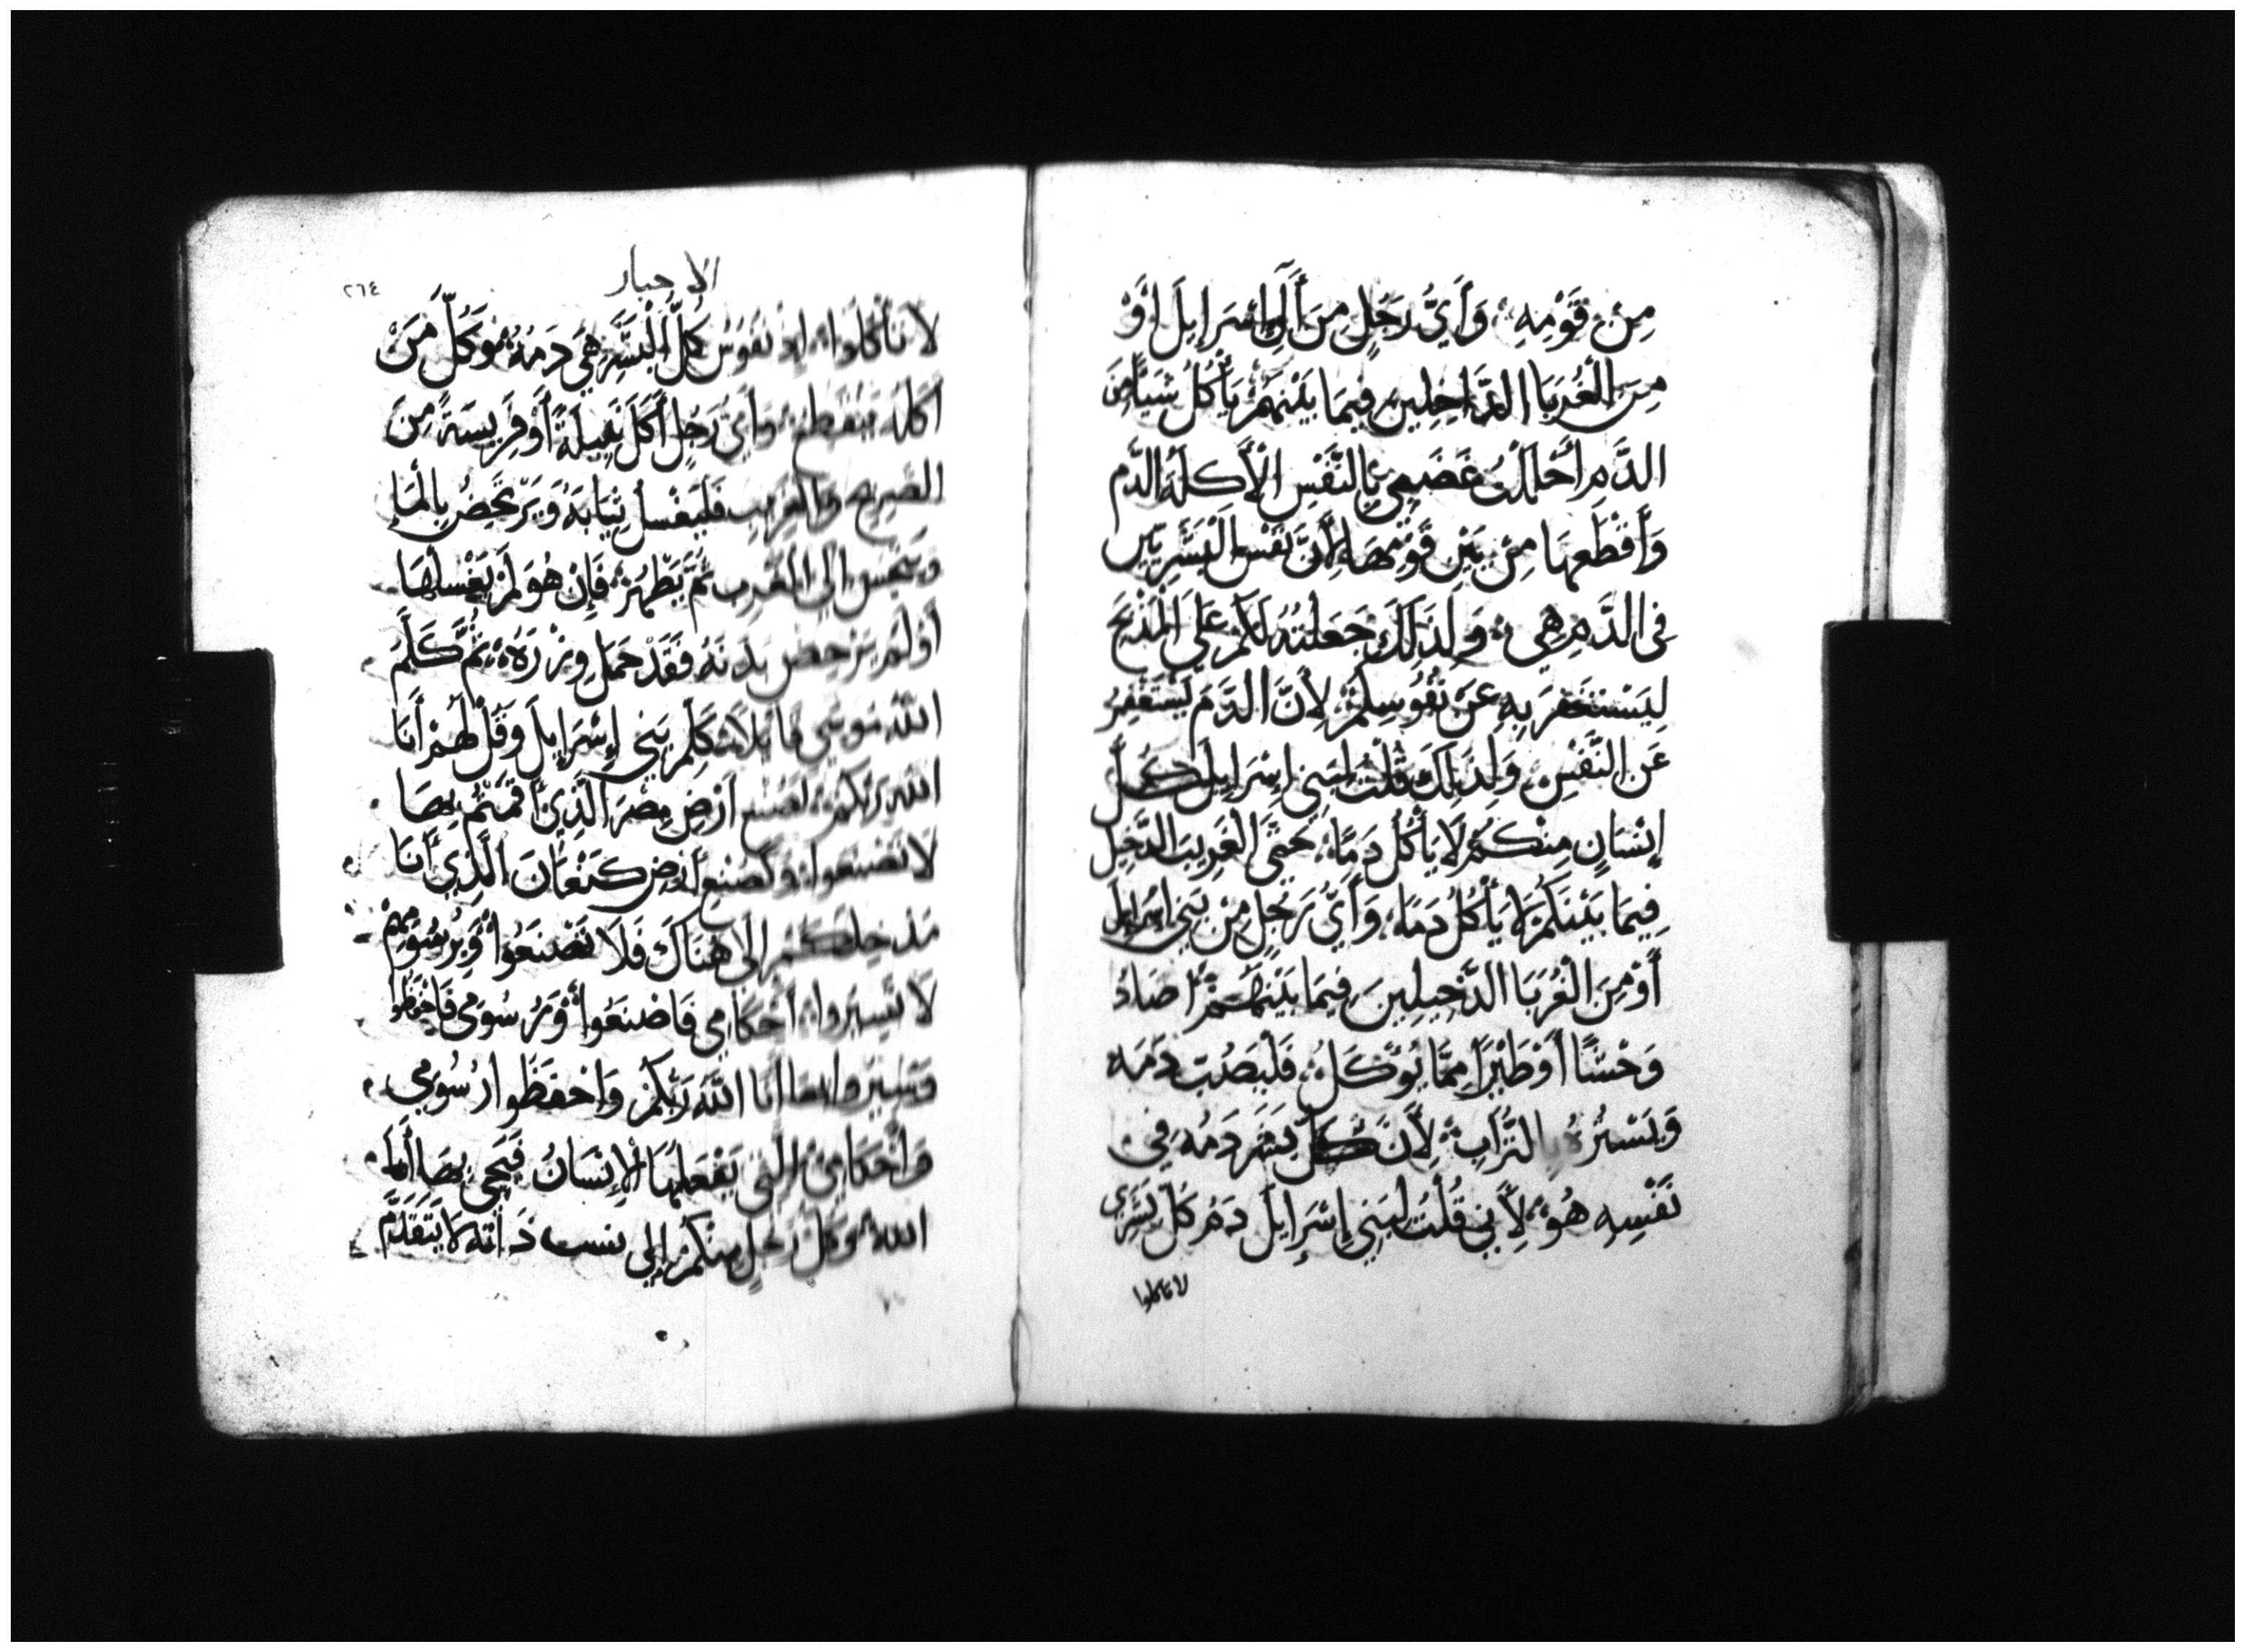 مِن قَوْمِهِ وَأَيُّ رَجُلٍ مِنَ أَلِ إِسْرَايِلَ أَوْ
مِنَ الْغُرَبَا الدَّاخِلِين فِيمَا بَيْنَهُمْ يَأْكُلُ شَيَّا مِنَ
الدَّمِ أَحْلَلْتُ غَضَبِي بِالنَّفْسِ الْأَكلَة الدَّم
وَأَقْطَعهَا مِنْ بَيْنِ قَوْمِهَا لِأَنَّ نَفْسَ الْبَشَرِيين
فِي الدَّمِ هِي وَلِذَلِكَ جَعَلْتُهُ لَكُمْ عَلَى الْمَذْبَحِ
لِيَسْتَغْفِرَ بِهِ عَنْ نُفُوسِكُمْ لِأَنَّ الدَّمَ يَسْتَغْفِرُ
عَنِ النَّفْسِ وَلِذَلِكَ قُلْتُ لِبَنِي إِسْرَايِلَ كُلُّ
إِنْسَانٍ مِنْكُمْ لَا يَأْكُلْ دَمًا حَتَّى الْغَرِيبَ الدَّخِيلَ
فِيمَا بَيْنَكُمْ لَا يَأْكُلُ دَمًا وَأَيُّ رَجُلٍ مِنْ بَنِي اسْرَايِل
أَوْ مِنَ الْغُرَبَا الدَّخِيلِينَ فِيمَا بَيْنَهُمْ اصَادَ
وَحْشًا أَوْ طَيْرًا مِمَّا يُؤْكَلُ فَلْيَصُبَّ دَمَه
وَيَسْتُرُهُ بِالتُّرَابِ لِأَنَّ كُلَّ بَشَرٍ دَمُهُ فِي
نَفْسِهِ هُوَ لِأَنِّي قُلْتُ لِبَنِي إِسْرَايِلَ دَمُ كُلِّ بَشَرِي
لا تاكلوا
الاحبار
٢٦٤
لا تَأْكُلُوا إِذ نُفُوسُ كُلِّ الْبَشَرِ هِيَ دَمُهُ وَكُلُّ مَنْ
أكَلَهُ يَنْقَطِعُ وَأَيُّ رَجُلٍ أَكَلَ نَبِيلَةً أَوْ فَرِيسَةً مِنَ
الصَّرِيحِ وَالْغَرِيبِ فَلْيَغْسِلْ ثِيَابَهُ وَيَرْحَضُ بِالْمَا
وَيَنْجَسُ الى الْمَغْرِبِ ثُمَّ يَطْهُرُ فَإِنْ هُوَ لَمْ يَغْسِلْهَا
أَوْ لَمْ يَرْحَض بَدَنَهُ فَقَدْ حَمَلَ وِزْرَهُ ثُمَّ كَلَّمَ
اللهُ مُوسَى قَايِلاً كَلِّمْ بَنِي إِسْرَايِلَ وَقُلْ لَهُمْ أَنَا
اللهُ رَبُّكُمْ كَصُنْعِ أَرْضِ مِصْرَ الَّذِي أَقَمْتُمْ بِهَا
لَا تَصْنَعُوا وَكَصُنْعِ أَرْضِ كَنْعَانَ الَّذِي أَنَا
مُدْخِلُكُمْ إِلَى هُنَاكَ فَلَا تَصْنَعُوا وَبِرُسُومِهِمْ
لَا تَسِيرُوا أَحْكَامِي فَاصْنَعُوا وَرُسُومِي فَاحْفَظُوا
وَتَسِيرُوا بِهَا أَنَا اللهُ رَبُّكُمْ وَاحْفَظُوا رُسُومِي
وَأَحْكَامِي الَّتِي يَفْعَلُهَا الْإِنْسَانُ فَيَحْيَ بِهَا أَنَا
اللهُ وَكُلُّ رَجُلٍ مِنْكُمْ إِلَى نسب ذَاته لَا يَتَقَدَّمْ